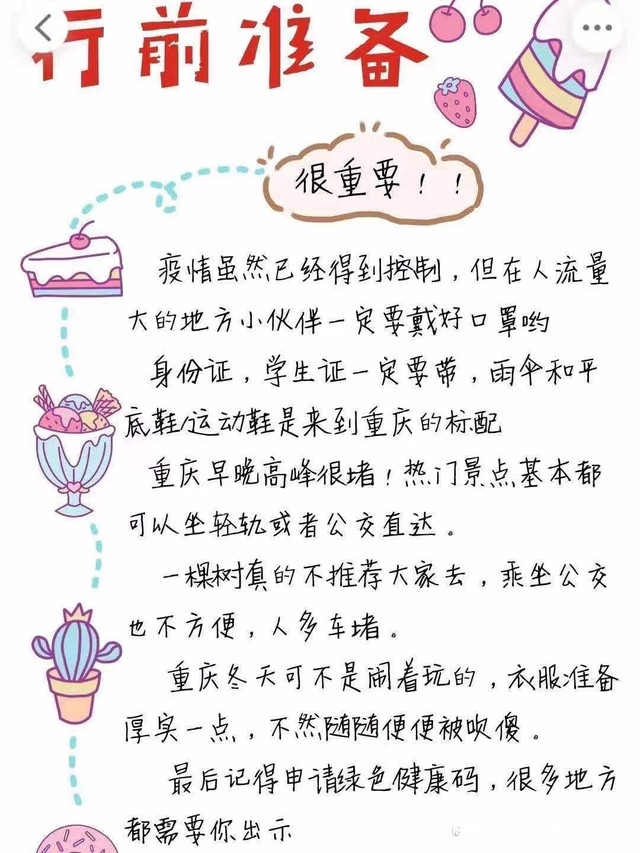 行前准备
很重要！！
疫情虽然已经得到控制，但在人流量
大的地方小伙伴一定要戴好口罩哟
身份证，学生证一定要带，雨伞和平
底鞋/运动鞋是来到重庆的标配
重庆早晚高峰很堵！热门景点基本都
可以坐轻轨或者公交直达。
一棵树真的不推荐大家去，乘坐公交
也不方便，人多车堵。
重庆冬天可不是闹着玩的，衣服准备
厚实一点，不然随随便便被吹傻。
最后记得申请绿色健康码，很多地方
都需要你出示